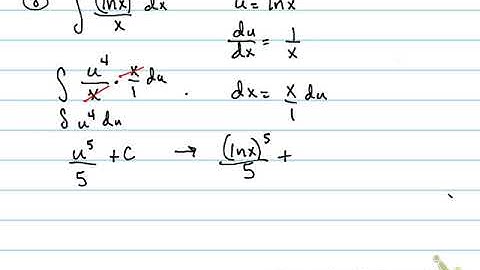 ∫ (lnx) dx u = lnx
x
du/dx = 1/x
∫ u⁴/x · x/1 du . dx = x/1 du
∫ u⁴ du
u⁵/5 + C → (lnx)⁵/5 +